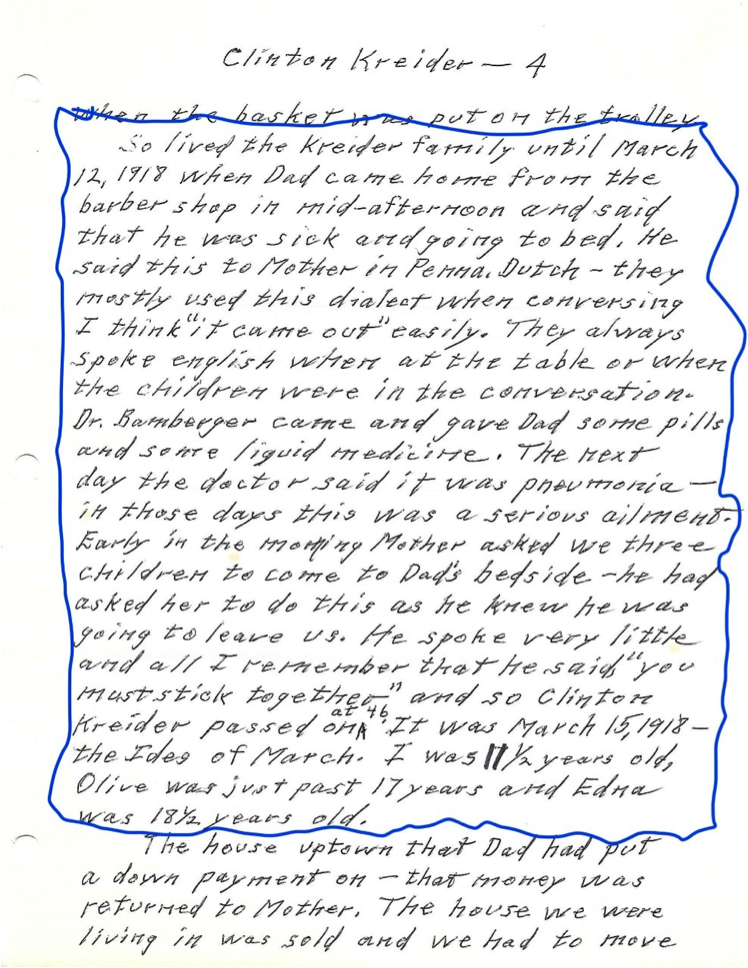 Clinton Kreider — 4
when the basket was put on the trolley
So lived the Kreider family until March
12, 1918 when Dad came home from the
barber shop in mid-afternoon and said
that he was sick and going to bed. He
said this to Mother in Penna. Dutch - they
mostly used this dialect when conversing
I think "it came out" easily. They always
spoke english when at the table or when
the children were in the conversation.
Dr. Bamberger came and gave Dad some pills
and some liquid medicine. The next
day the doctor said it was pneumonia —
in those days this was a serious ailment.
Early in the morning Mother asked we three
children to come to Dad's bedside - he had
asked her to do this as he knew he was
going to leave us. He spoke very little
and all I remember that he said "you
must stick together" and so Clinton
Kreider passed on at 46. It was March 15, 1918 —
the Ides of March. I was 11 1/2 years old,
Olive was just past 17 years and Edna
was 18 1/2 years old.
The house uptown that Dad had put
a down payment on - that money was
returned to Mother. The house we were
living in was sold and we had to move